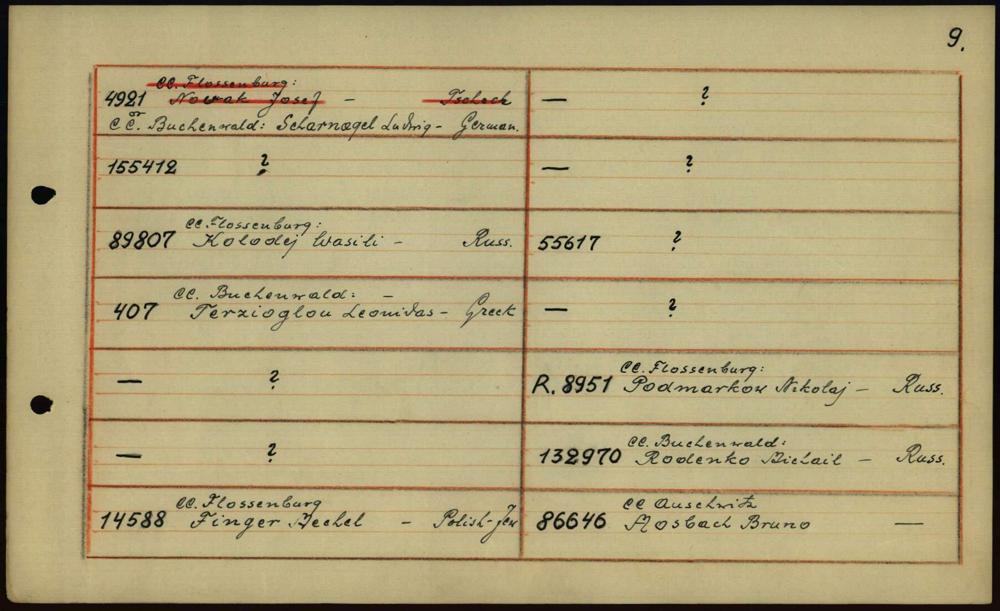 9.
CC. Flossenburg:
4921 Nowak Josef - Tschech
CC. Buchenwald: Scharnagel Ludwig - German.
— ?
155412 ?
— ?
CC. Flossenburg:
89807 Kolodej Wasili - Russ.
55617 ?
CC. Buchenwald: -
407 Terzioglou Leonidas - Greek
— ?
— ?
CC. Flossenburg:
R. 8951 Podmarkow Nikolaj - Russ.
— ?
CC. Buchenwald:
132970 Rodenko Michail - Russ.
CC. Flossenburg
14588 Finger Mechel - Polish-Jew
CC Auschwitz
86646 Mosbach Bruno —